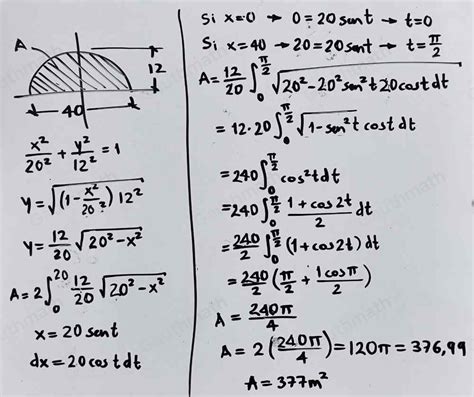 A
12
40
x²/20² + y²/12² = 1
y = √((1 - x²/20²) 12²)
y = 12/20 √(20² - x²)
A = 2∫₀²⁰ 12/20 √(20² - x²)
x = 20 sent
dx = 20 cos t dt
Si x=0 → 0 = 20 sent → t=0
Si x=40 → 20=20 sent → t = π/2
A = 12/20 ∫₀^(π/2) √(20² - 20² sen² t) 20 cos t dt
= 12·20 ∫₀^(π/2) √(1 - sen² t) cos t dt
= 240 ∫₀^(π/2) cos² t dt
= 240 ∫₀^(π/2) (1 + cos 2t)/2 dt
= 240/2 ∫₀^(π/2) (1 + cos 2t) dt
= 240/2 (π/2 + 1cosπ/2)
A = 240π/4
A = 2(240π/4) = 120π = 376,99
A = 377m²